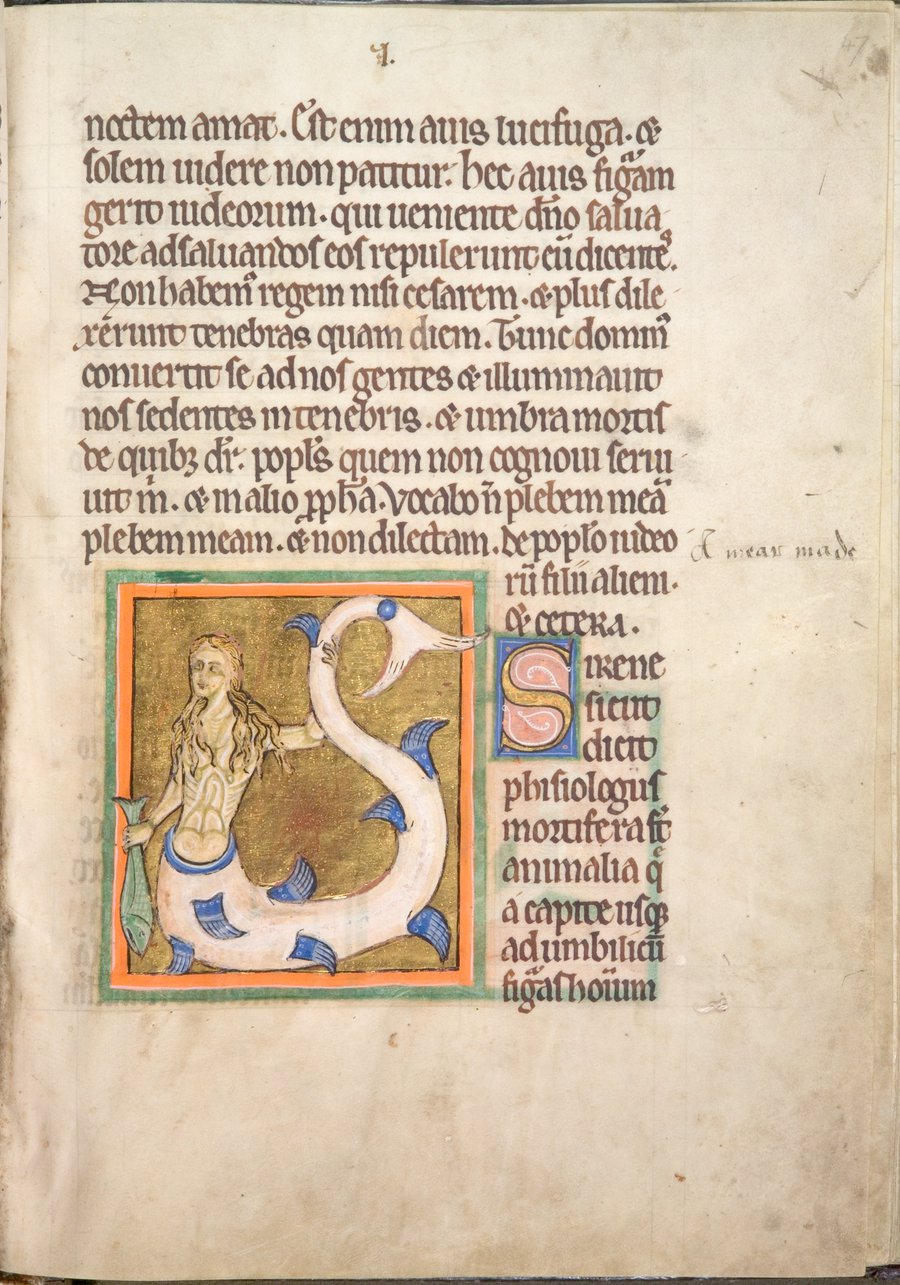 I.
47
noctem amat. Est enim auis lucifuga. &
solem uidere non patitur. hec auis figam
gerit iudeorum. qui ueniente dño salua
tore ad saluandos eos repulerunt eū dicente᷒.
Non habem᷒ regem nisi cesarem. & plus dile
xerunt tenebras quam diem. Tunc domin᷒
conuertit se ad nos gentes & illuminauit
nos sedentes in tenebris. & umbra mortis
de quibꝫ dr̄. popl̄s quem non cognoui serui
uit m̄. & in alio ꝓph̄a. Vocabo ñ plebem meā
plebem meam. & non dilectam. De popl̄o iudeo
A mear made
rū filii alieni.
& cetera.
Sirene
sicut
dicit
phisiologus
mortifera st̄
animalia q̄
a capite usqꝫ
ad umbilicū
figas hoium